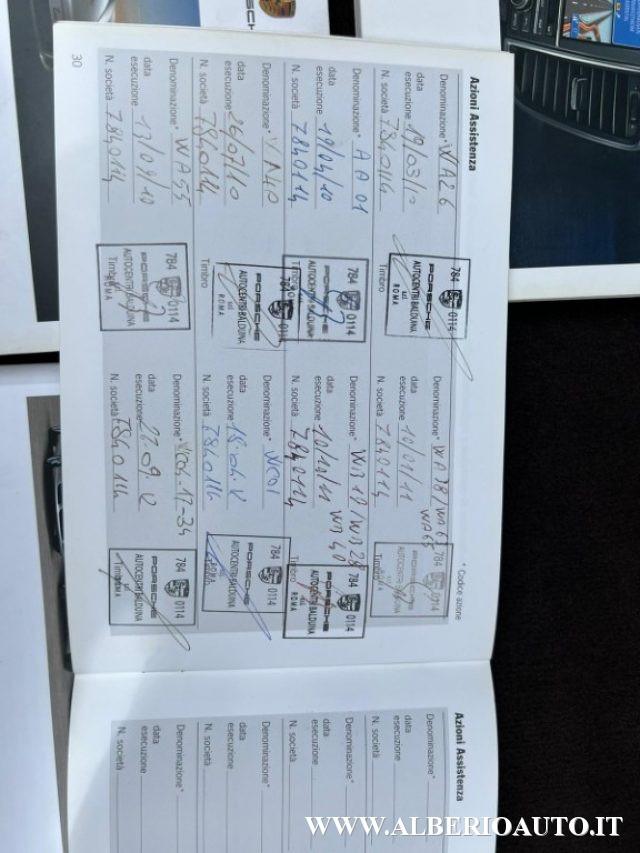 Azioni Assistenza
* Codice azione
Denominazione* WA26
data
esecuzione 19/03/10
N. società 7840114
Timbro
784 0114
PORSCHE
AUTOCENTRI BALDUINA
srl
ROMA
Denominazione* AA01
data
esecuzione 19/04/10
N. società 7840114
Timbro
784 0114
PORSCHE
AUTOCENTRI BALDUINA
Denominazione* WA40
data
esecuzione 26/07/10
N. società 7840114
Timbro
784 0114
PORSCHE
AUTOCENTRI BALDUINA
srl
ROMA
Denominazione* WA55
data
esecuzione 13/09/10
N. società 7840114
Timbro
784 0114
PORSCHE
AUTOCENTRI BALDUINA
srl
ROMA
Denominazione* WA78/WA6
WA65
data
esecuzione 10/01/11
N. società 7840114
Timbro
784 0114
Denominazione* WB18/WB28
WB40
data
esecuzione 10/11/11
N. società 7840114
Timbro
784 0114
PORSCHE
AUTOCENTRI BALDUINA
srl
ROMA
Denominazione* WC01
data
esecuzione 18.04.12
N. società 7840114
784 0114
PORSCHE
AUTOCENTRI BALDUINA
srl
ROMA
Denominazione* WC04-17-34
data
esecuzione 27.09.12
N. società 7840114
Timbro
784 0114
PORSCHE
AUTOCENTRI BALDUINA
srl
ROMA
30
Azioni Assistenza
Denominazione*
data
esecuzione
N. società
Denominazione*
data
esecuzione
N. società
Denominazione*
data
esecuzione
N. società
Denominazione*
data
esecuzione
N. società
WWW.ALBERIOAUTO.IT